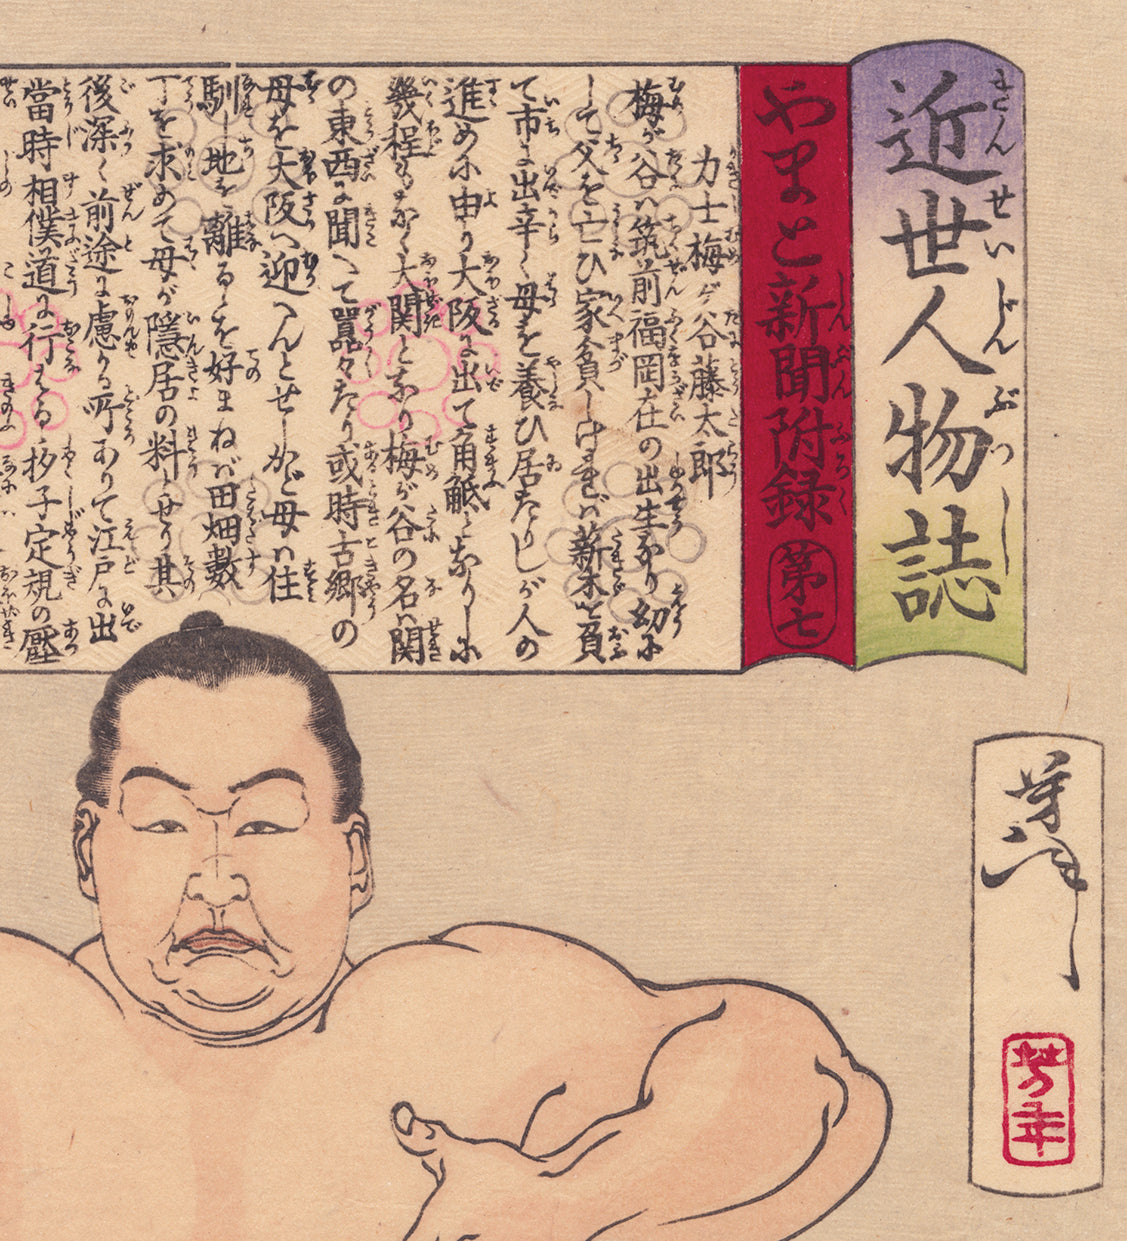 近世人物誌
やまと新聞附録
第七
力士梅ヶ谷藤太郎
梅が谷ハ筑前福岡在の出生なり幼に
して父を亡ひ家貧しけれバ薪木を負
て市に出辛く母を養ひ居たりしが人の
進めに由り大阪に出て角觝となりしに
幾程もなく大関となり梅が谷の名ハ関
の東西に聞へて囂々たり或時古郷の
母を大阪へ迎へんとせしかど母ハ住
馴し地を離るゝを好まねバ田畑数
丁を求めて母が隠居の料とせり其
後深く前途に慮かる所ありて江戸に出
當時相僕道に行はる 子定規の壓
芳年
芳年